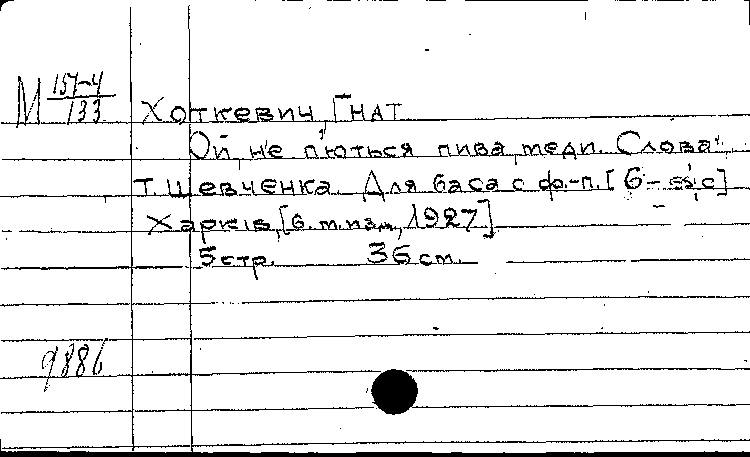 М 157-4/133
Хоткевич, Гнат
Ой, не п'ються пива, меди. Слова
Т. Шевченка. Для баса с ф.-п. [G-es',c]
Харків, [б. т. изд., 1927]
5 стр. 36 см.
9886